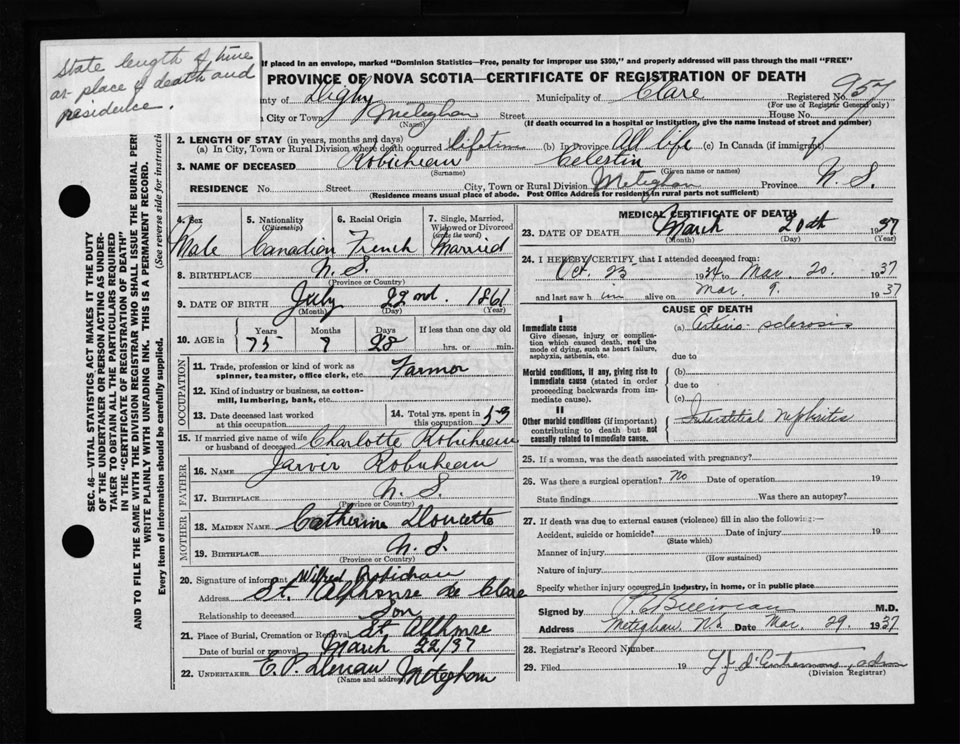 State length of time
at place of death and
residence.
If placed in an envelope, marked "Dominion Statistics—Free, penalty for improper use $300," and properly addressed will pass through the mail "FREE"
PROVINCE OF NOVA SCOTIA—CERTIFICATE OF REGISTRATION OF DEATH
County of Digby Municipality of Clare Registered No. 957
(For use of Registrar General only)
City or Town Meteghan Street House No.
(Name) (If death occurred in a hospital or institution, give the name instead of street and number)
2. LENGTH OF STAY (in years, months and days)
(a) In City, Town or Rural Division where death occurred lifetime (b) In Province All life (c) In Canada (if immigrant)
3. NAME OF DECEASED Robicheau Celestin
(Surname) (Given name or names)
RESIDENCE No. Street City, Town or Rural Division Meteghan Province N. S.
(Residence means usual place of abode. Post Office Address for residents in rural parts not sufficient)
SEC. 46—VITAL STATISTICS ACT MAKES IT THE DUTY
OF THE UNDERTAKER OR PERSON ACTING AS UNDER-
TAKER TO OBTAIN ALL THE PARTICULARS REQUIRED
IN THE "CERTIFICATE OF REGISTRATION OF DEATH"
AND TO FILE THE SAME WITH THE DIVISION REGISTRAR WHO SHALL ISSUE THE BURIAL PER
WRITE PLAINLY WITH UNFADING INK. THIS IS A PERMANENT RECORD.
Every item of information should be carefully supplied. (See reverse side for instructi
4. Sex 5. Nationality 6. Racial Origin 7. Single, Married,
(Citizenship) Widowed or Divorced
(write the word)
Male Canadian French Married
8. BIRTHPLACE N. S.
(Province or Country)
9. DATE OF BIRTH July 22nd 1861
(Month) (Day) (Year)
10. AGE in Years Months Days If less than one day old
75 7 28 hrs. or min.
OCCUPATION
11. Trade, profession or kind of work as
spinner, teamster, office clerk, etc. Farmer
12. Kind of industry or business, as cotton-
mill, lumbering, bank, etc.
13. Date deceased last worked 14. Total yrs. spent in
at this occupation this occupation 53
15. If married give name of wife
or husband of deceased Charlotte Robicheau
FATHER
16. NAME Jarvis Robicheau
17. BIRTHPLACE N. S.
(Province or Country)
MOTHER
18. MAIDEN NAME Catherine Doucette
19. BIRTHPLACE N. S.
(Province or Country)
20. Signature of informant Wilfred Robichau
Address St. Alphonse de Clare
Relationship to deceased Son
21. Place of Burial, Cremation or Removal St. Alphonse
Date of burial or removal March 22/37
22. UNDERTAKER E. P. Meteghan
(Name and address)
MEDICAL CERTIFICATE OF DEATH
23. DATE OF DEATH March 20th 1937
(Month) (Day) (Year)
24. I HEREBY CERTIFY that I attended deceased from:
Oct. 25 1934 to Mar. 20. 1937
and last saw him alive on Mar. 9. 1937
CAUSE OF DEATH
I
Immediate cause (a) Arterio-sclerosis
Give disease, injury or complica-
tion which caused death, not the
mode of dying, such as heart failure,
asphyxia, asthenia, etc. due to
Morbid conditions, if any, giving rise to (b)
immediate cause (stated in order due to
proceeding backwards from im-
mediate cause). (c)
II
Other morbid conditions (if important) Interstitial Nephritis
contributing to death but not
causally related to immediate cause.
25. If a woman, was the death associated with pregnancy?
26. Was there a surgical operation? No Date of operation 19
State findings Was there an autopsy?
27. If death was due to external causes (violence) fill in also the following:—
Accident, suicide or homicide? Date of injury 19
(State which)
Manner of injury
(How sustained)
Nature of injury
Specify whether injury occurred in industry, in home, or in public place
Signed by M.D.
Address Meteghan, N.S. Date Mar. 29. 1937
28. Registrar's Record Number
29. Filed 19 d'Entremont
(Division Registrar)